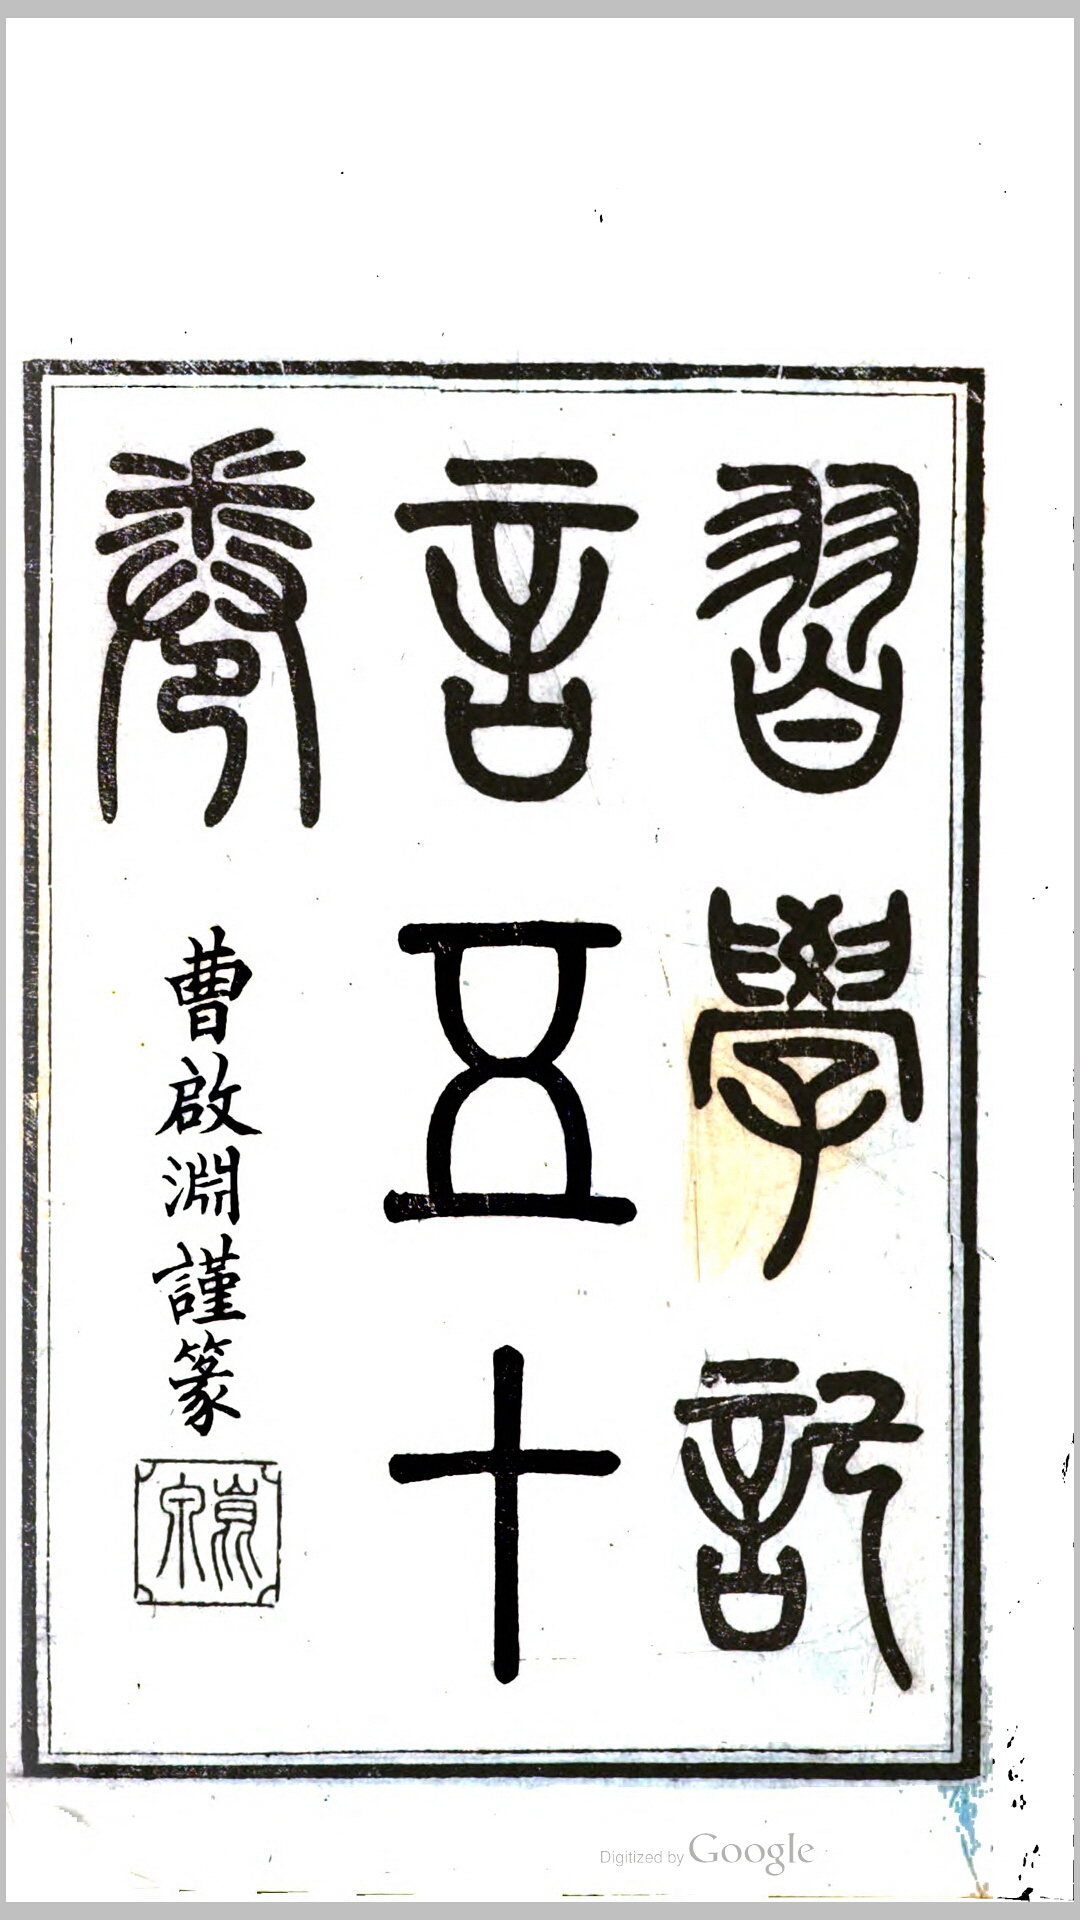 習學記
言五十
卷
曹啟淵謹篆
Digitized by Google